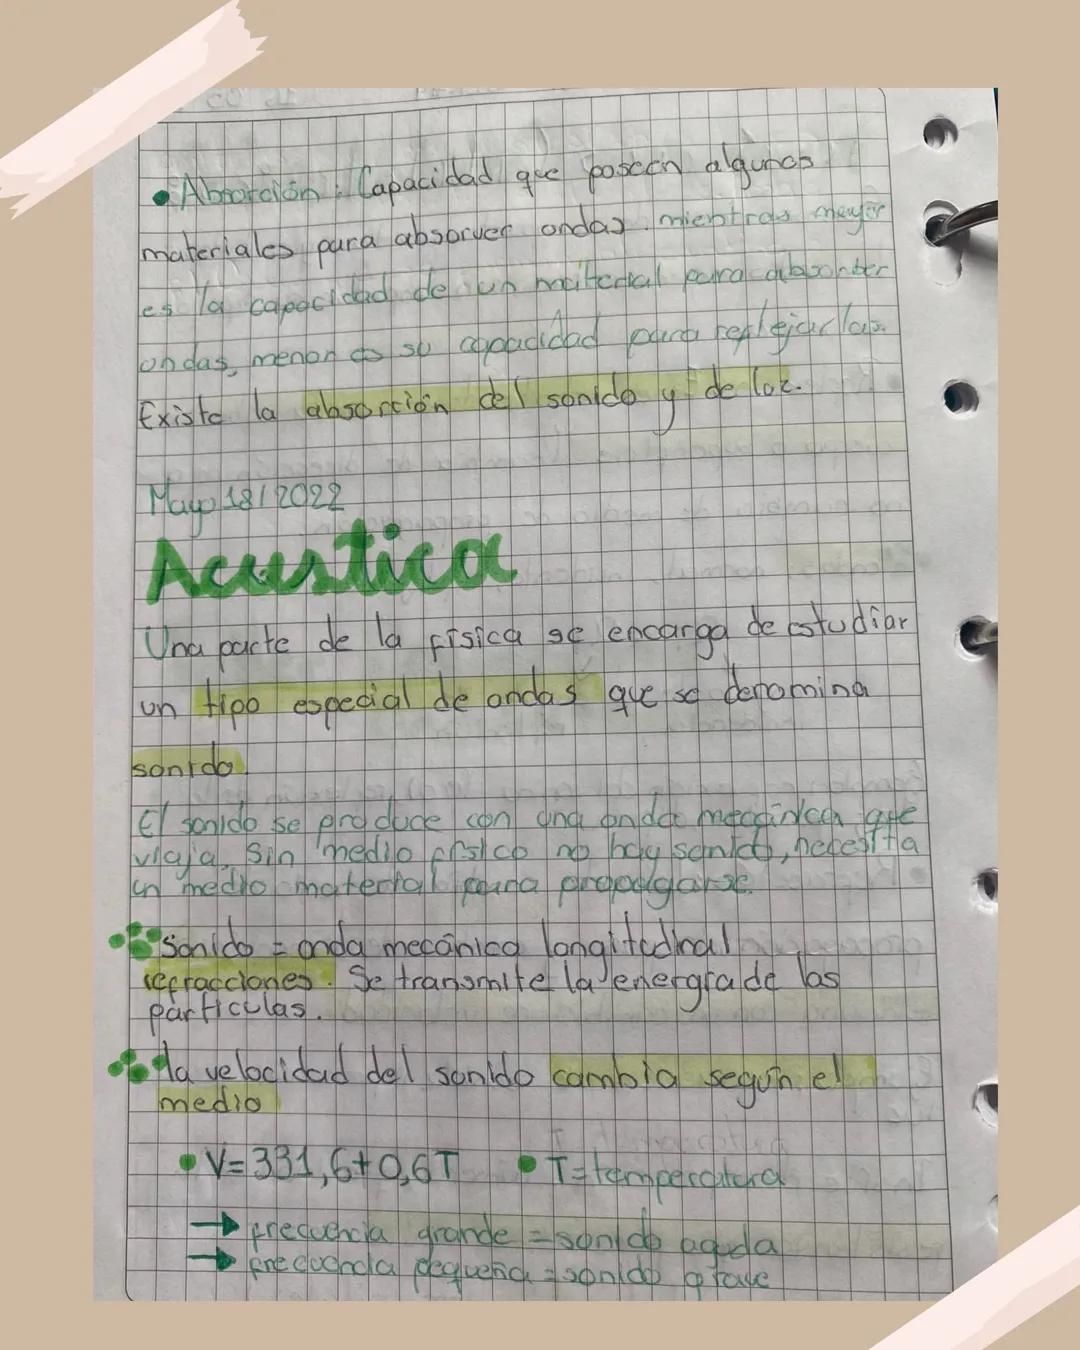 • Absorción: Capacidad que poseen algunos
materiales para absorver ondas. mientras mayor
es la capacidad de un material para absorber
ondas, menor es su capacidad para reflejarlas.
Existe la absorción del sonido y de luz.
Mayo 18/2022
Acustica
Una parte de la física se encarga de estudiar
un tipo especial de ondas que se denomina
sonido.
El sonido se produce con una onda mecánica que
viaja. Sin medio físico no hay sonido, necesita
un medio material para propagarse.
sonido = onda mecánica longitudinal
refracciones. Se transmite la energía de las
partículas.
la velocidad del sonido cambia según el
medio
• V=331,6+0,6T • T=temperatura
→ frecuencia grande = sonido agudo
→ frecuencia pequeña = sonido grave